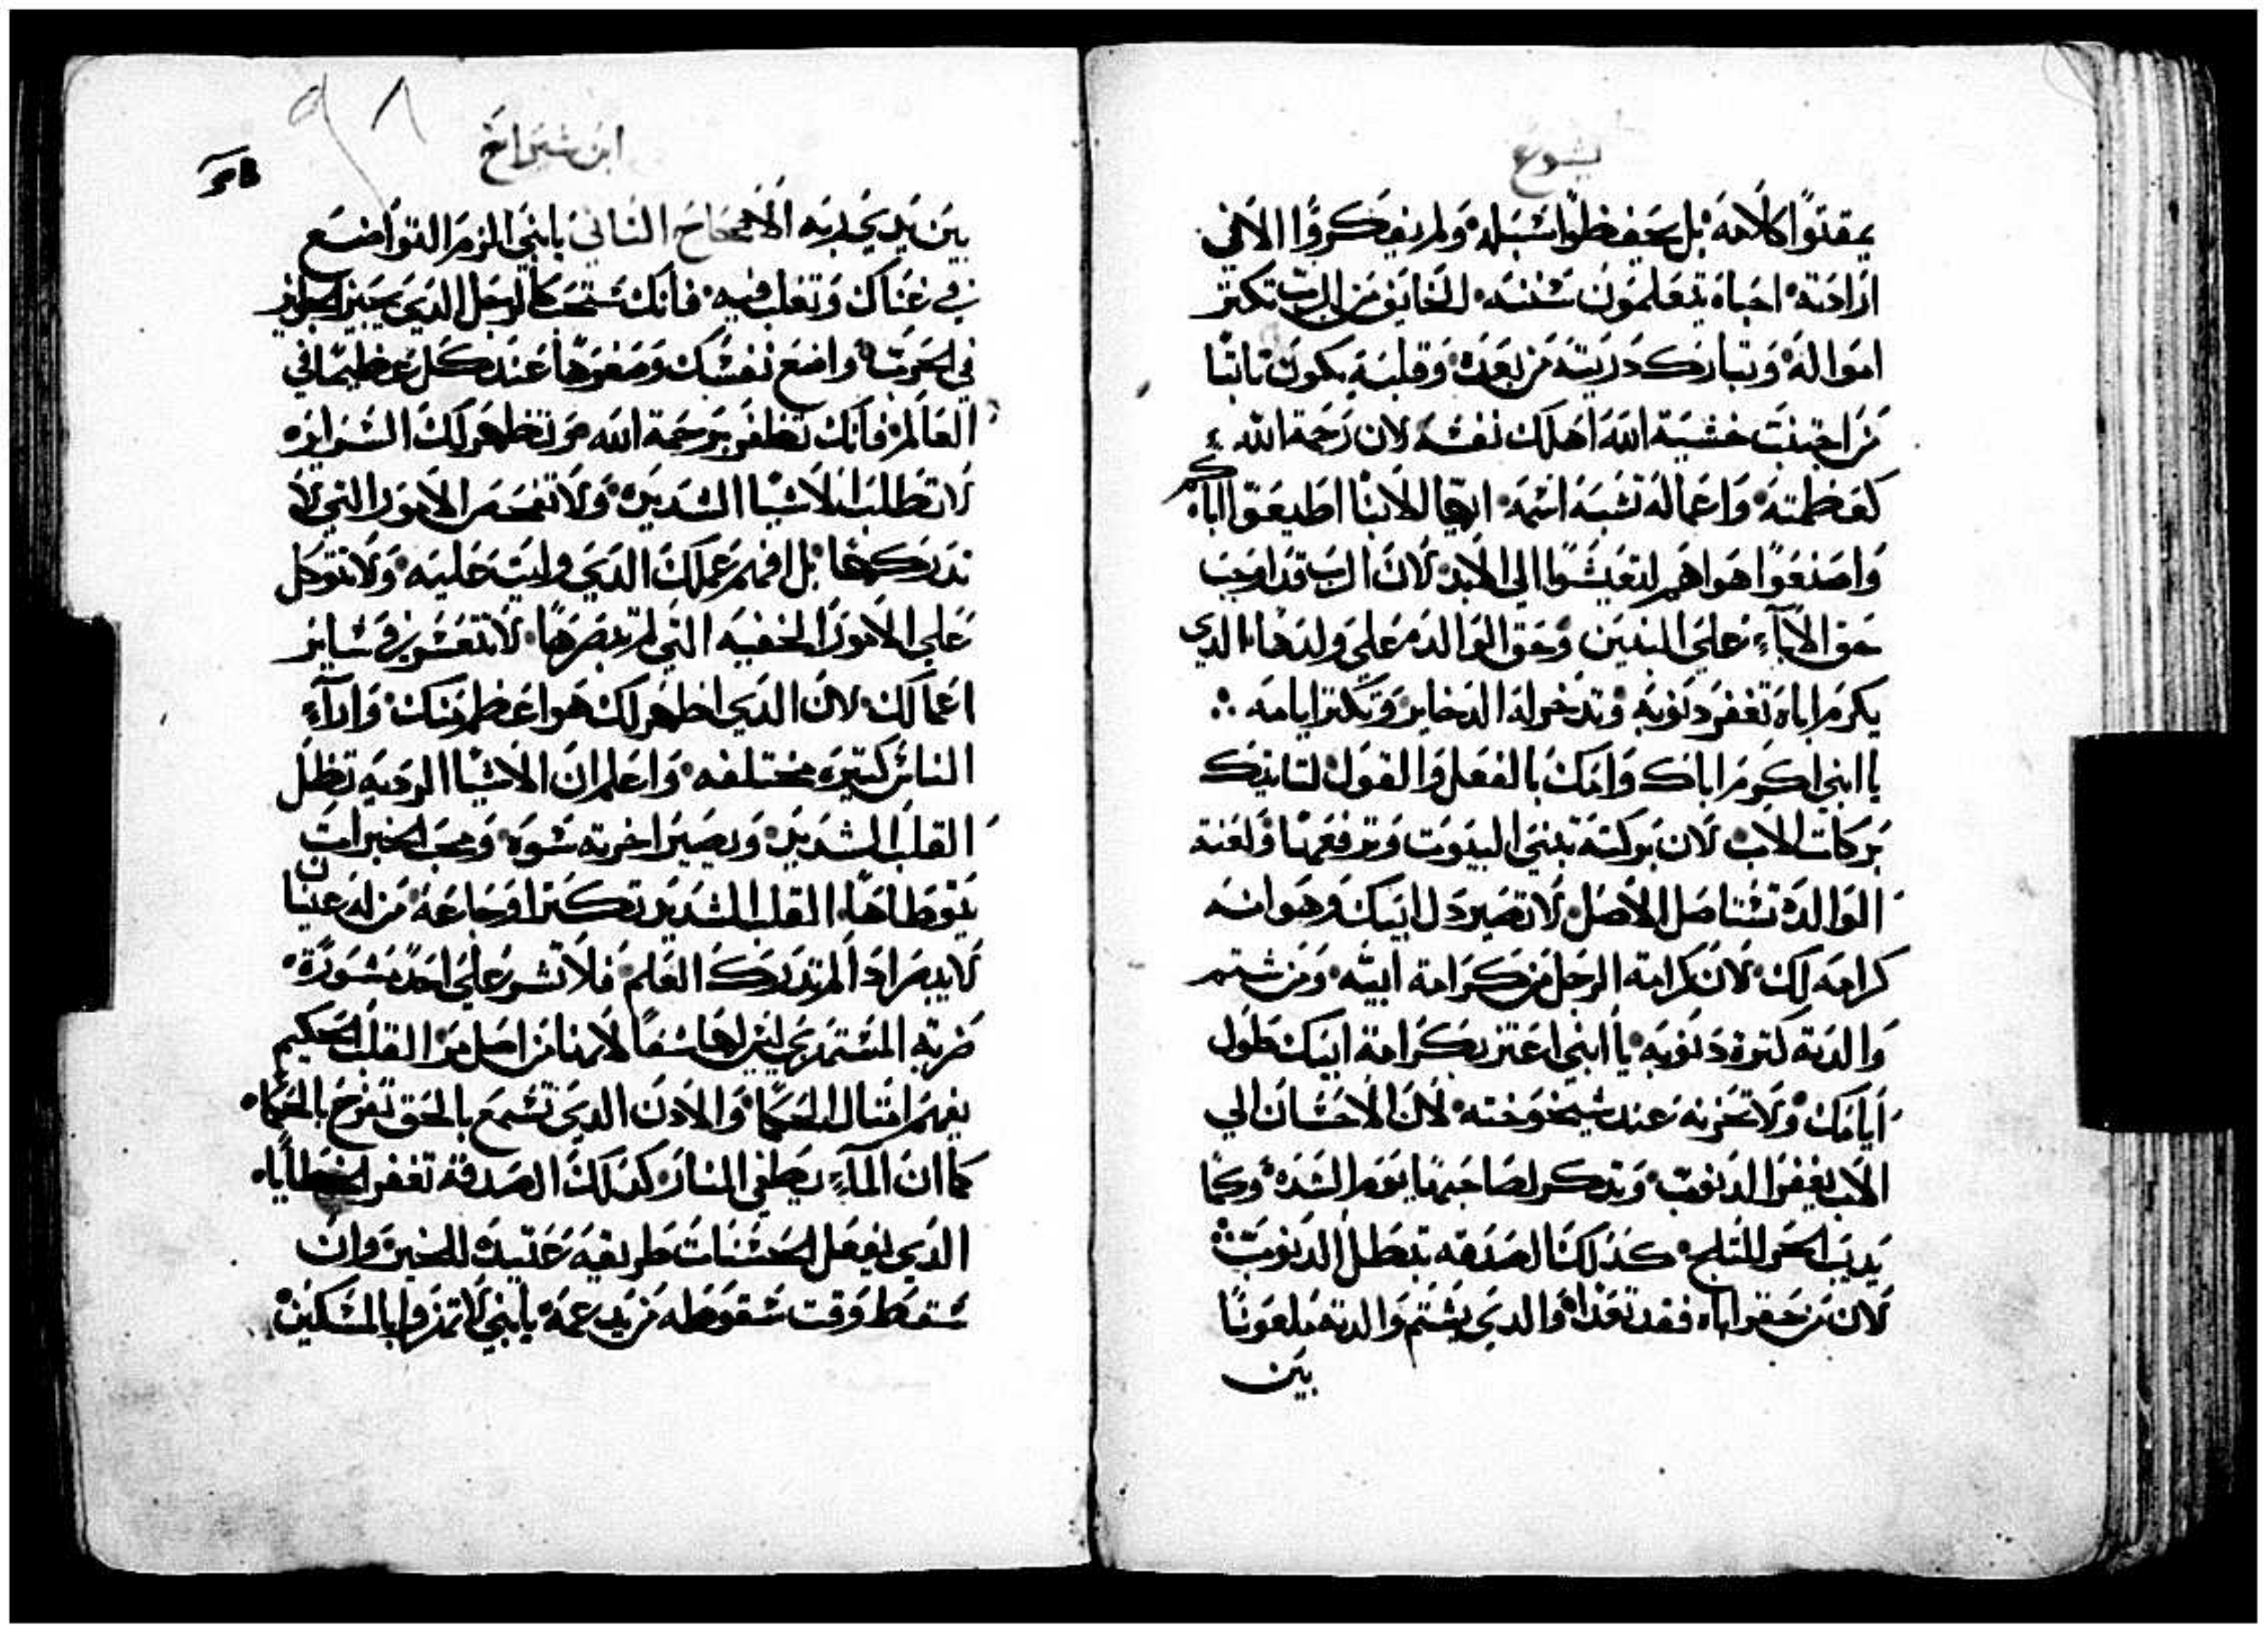 يشوع
يمقتوا كلامه بل يحفظوا سبله ولم يفكروا الا في
ارادته احباه يتعلمون سننه الخايف من الرب تكتر
امواله وتبارك دريته من بعده وقلبه يكون تابتا
من اجتنب خشية الله اهلك نفسه لان رحمة الله
كعظمته واعماله تشبه اسمه ايها الابنا اطيعوا اباكم
واصنعوا هواهم لتعيشوا الي الابد لان الرب قد اوجب
حق الاباء علي البنين وحق الوالده علي ولدها الدي
يكرم اباه تغفر دنوبه وتدخر له الدخاير وتكتر ايامه
يا ابني اكرم اباك وامك بالفعل والقول لتاتيك
بركات الاب لان بركته تبني البيوت وترفعها ولعنة
الوالده تستاصل الاصل لا تصير دل ابيك وهوانه
كرامه لك لان كرامة الرجل من كرامة ابيه ومن شتم
والدته كترة دنوبه يا ابني اعتز بكرامة ابيك طول
ايامك ولا تحزنه عند شيخوخته لان الاحسان الي
الاب يغفر الدنوب وتدكر لصاحبها يوم الشده وكما
يديب الحر التلج كدلك الصدقه تبطل الدنوب
لان من حقر اباه فقد والدي يشتم والدته ملعونا
بين
ابن شيراخ
بين يدي ربه الاصحاح التاني يابني الزم التواضع
في غناك وتقلب فيه فانك ستحب كالرجل الدي يجيز الجوايز
في واضع نفسك وصغرها عند كل عظيما في
العالم فانك تظفر برحمة الله وتظهر لك السراير
لا تطلب الاشيا الشديده ولا تفحص الامور التي لا
تدركها بل افهم عملك الدي وليت عليه ولا تتوكل
علي الامور الخفيه التي لم تبصرها لا تتعسر في ساير
اعمالك لان الدي اظهر لك هو اعظم منك واراء
الناس كتيره مختلفه واعلم ان الاشيا الرديه تظل
القلب الشديد ويصير اخرته سوه ومحب الخيرات
يتوطاها القلب الشديد تكتر اوجاعه من له عينان
لا يبصر ادا لم تدرك العلم فلا تشر علي احد مشورة
ضربة المستهزي ليس لها شفا لانها من اصل مر القلب الحكيم
يفهم امتال الحكما والادن الدي تسمع بالحق تفرح بالحكماه
كما ان الماء يطفي النار كدلك الصدقة تغفر الخطايا
الدي يفعل الحسنات طريقه عتيده للخير وان
سقط وقت سقوطه من يدعمه يابني لا تهزوا بالمسكين